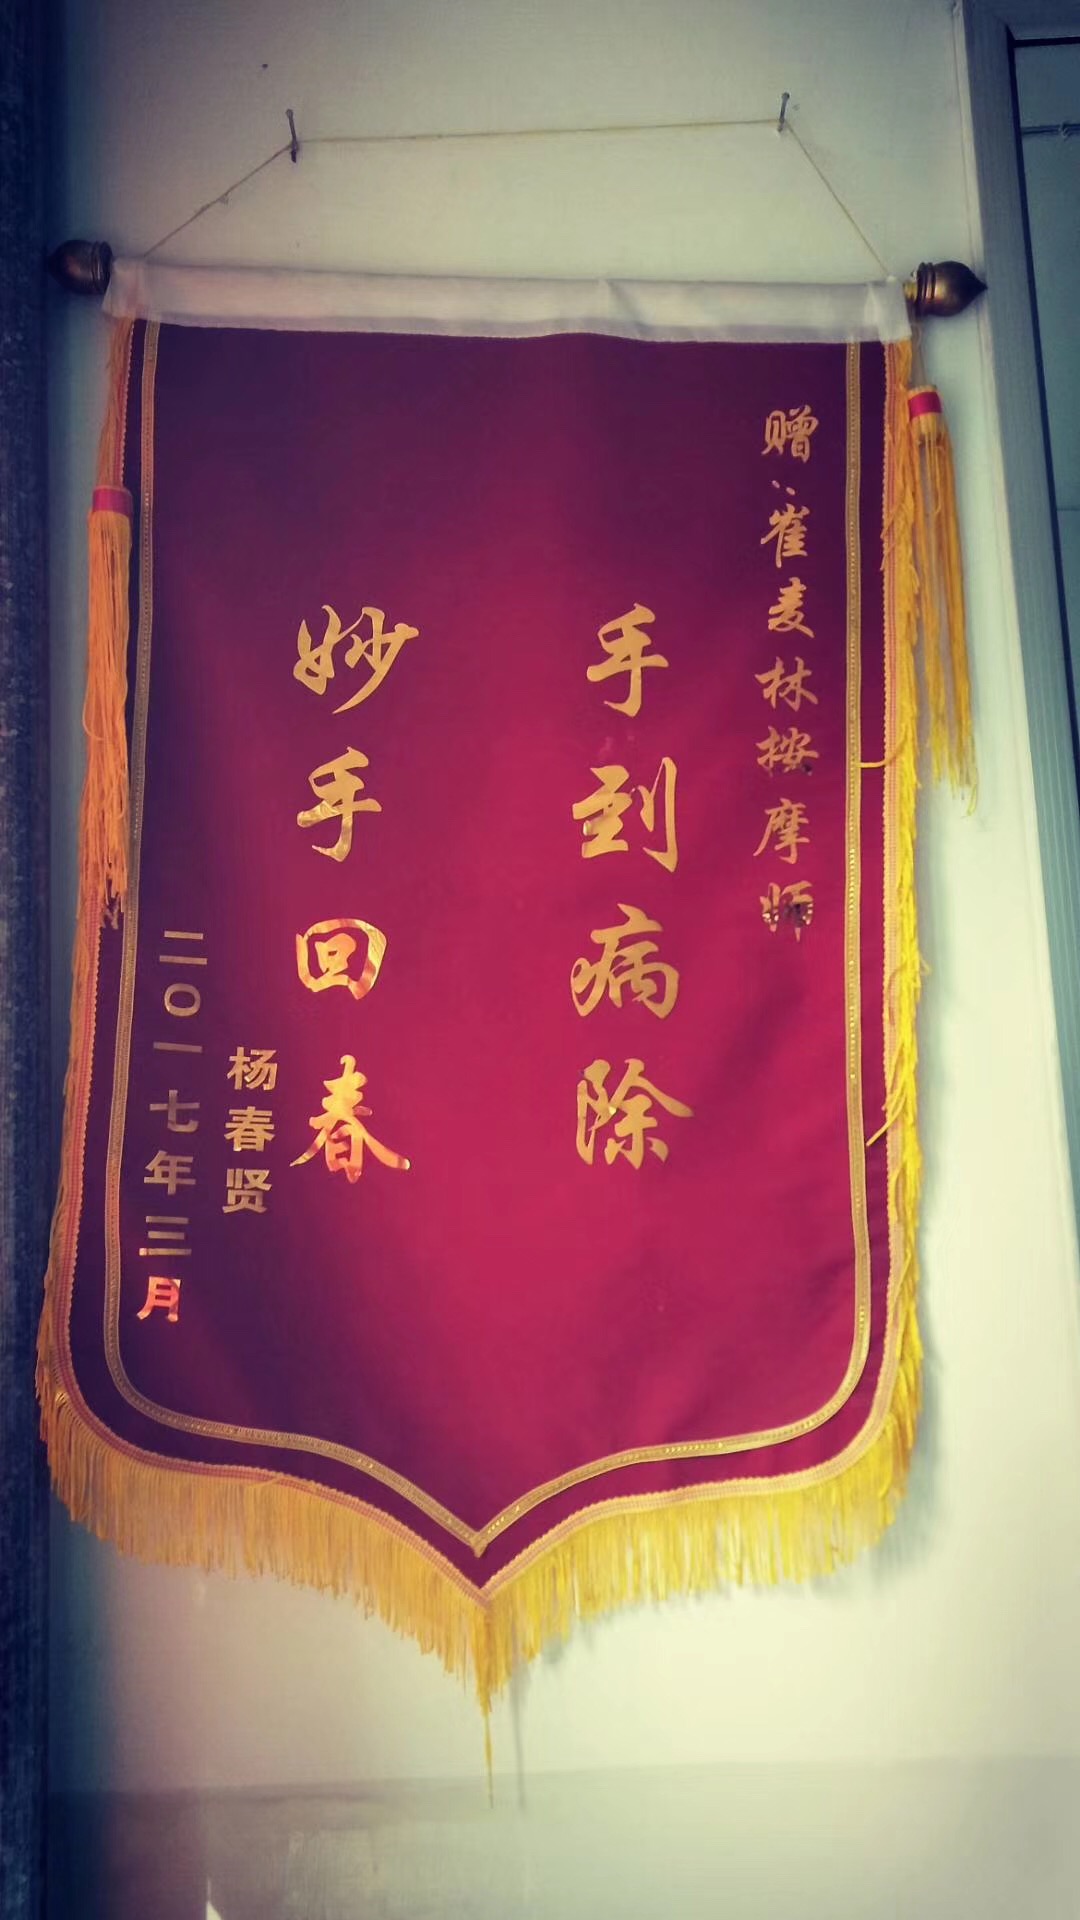 赠：崔麦林按摩师
手到病除
妙手回春
杨春贤
二〇一七年三月